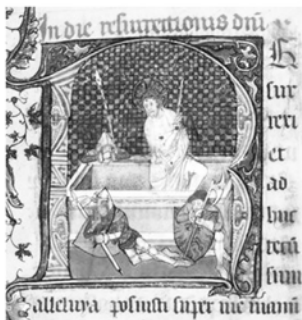 In die resurrectionis dñi
R
sur
rexi
et
ad
huc
tecū
sum
alleluya posuisti super me manū